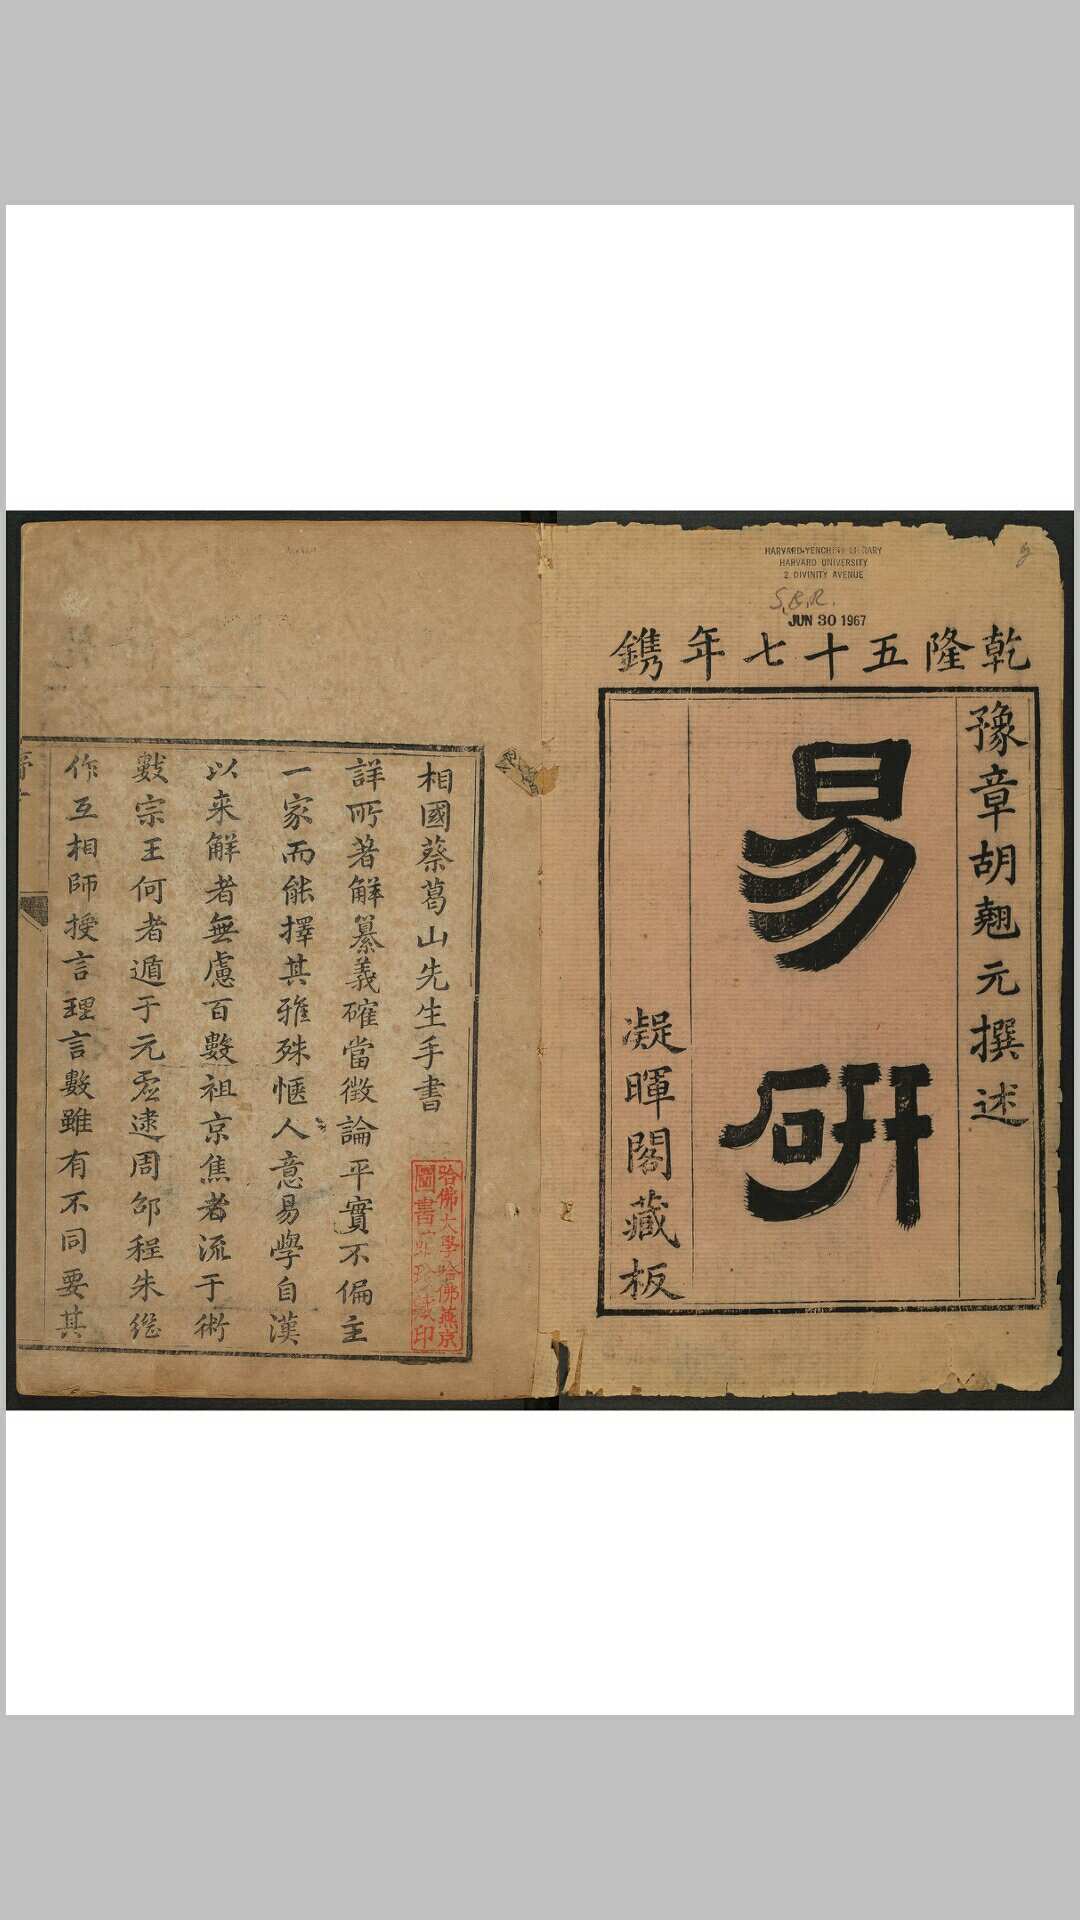 HARVARD-YENCHING LIBRARY
HARVARD UNIVERSITY
2 DIVINITY AVENUE
S.B.R.
JUN 30 1967
乾隆五十七年鐫
豫章胡翹元撰述
易研
凝暉閣藏板
相國蔡葛山先生手書
詳所著解纂義確當徴論平實不偏主
一家而能擇其雅殊愜人意易學自漢
以来解者無慮百數祖京焦者流于術
數宗王何者遁于元虛逮周邵程朱繼
作互相師授言理言數雖有不同要其
哈佛大學哈佛燕京
圖書館珍藏印